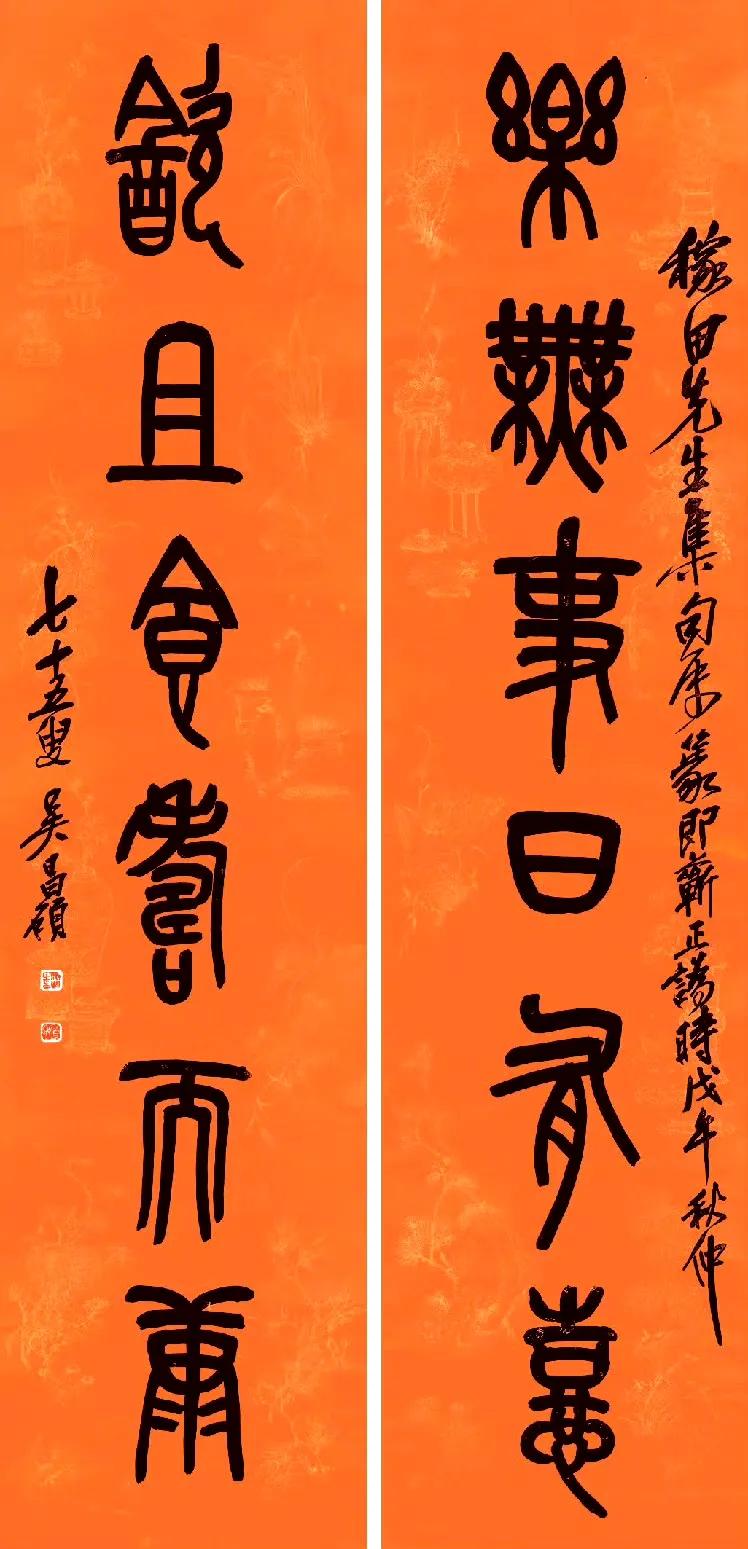 稼田先生集句屬篆即蘄正譌時戊午秋仲
樂無事日有憙
飲且食壽而康
七十五叟吳昌碩